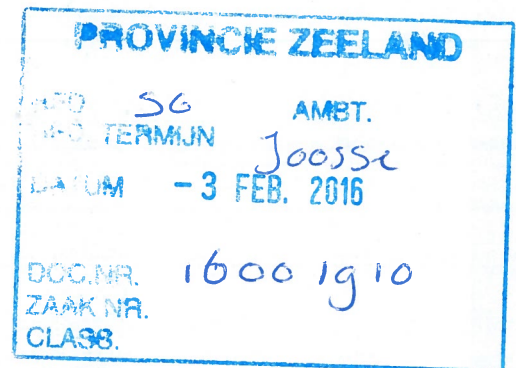 PROVINCIE ZEELAND
AFD SG AMBT.
TERMIJN Joosse
DATUM -3 FEB. 2016
DOC.NR. 16001910
ZAAK NR.
CLASS.